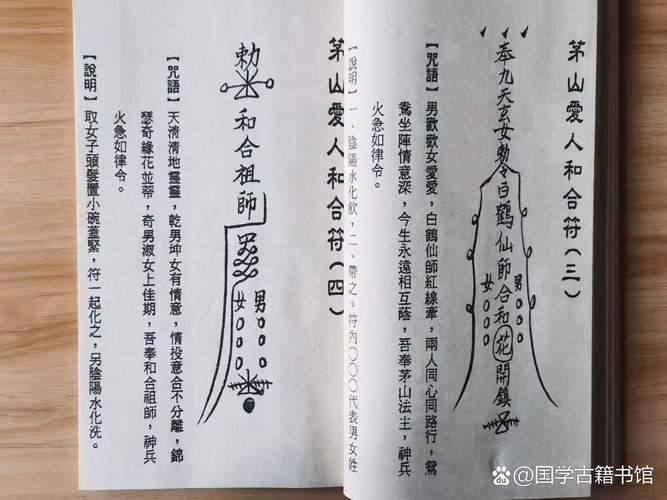 茅山愛人和合符(三)
奉九天玄女勅令白鶴仙師合和花開鎮
男
女
【咒語】男歡歡女愛愛,白鶴仙師紅線牽,兩人同心同路行,鴛
鴦坐陣情意深,今生永遠相互蔭,吾奉茅山法主,神兵
火急如律令。
【說明】一、陰陽水化飲,二、帶之。符內○○○代表男女姓
茅山愛人和合符(四)
勅
和合祖師
男
女
【咒語】天清清地靈靈,乾男坤女有情意,情投意合不分離,錦
瑟奇緣花並蒂,奇男淑女上佳期,吾奉和合祖師,神兵
火急如律令。
【說明】取女子頭髮置小碗蓋緊,符一起化之,另陰陽水化洗。
@国学古籍书馆